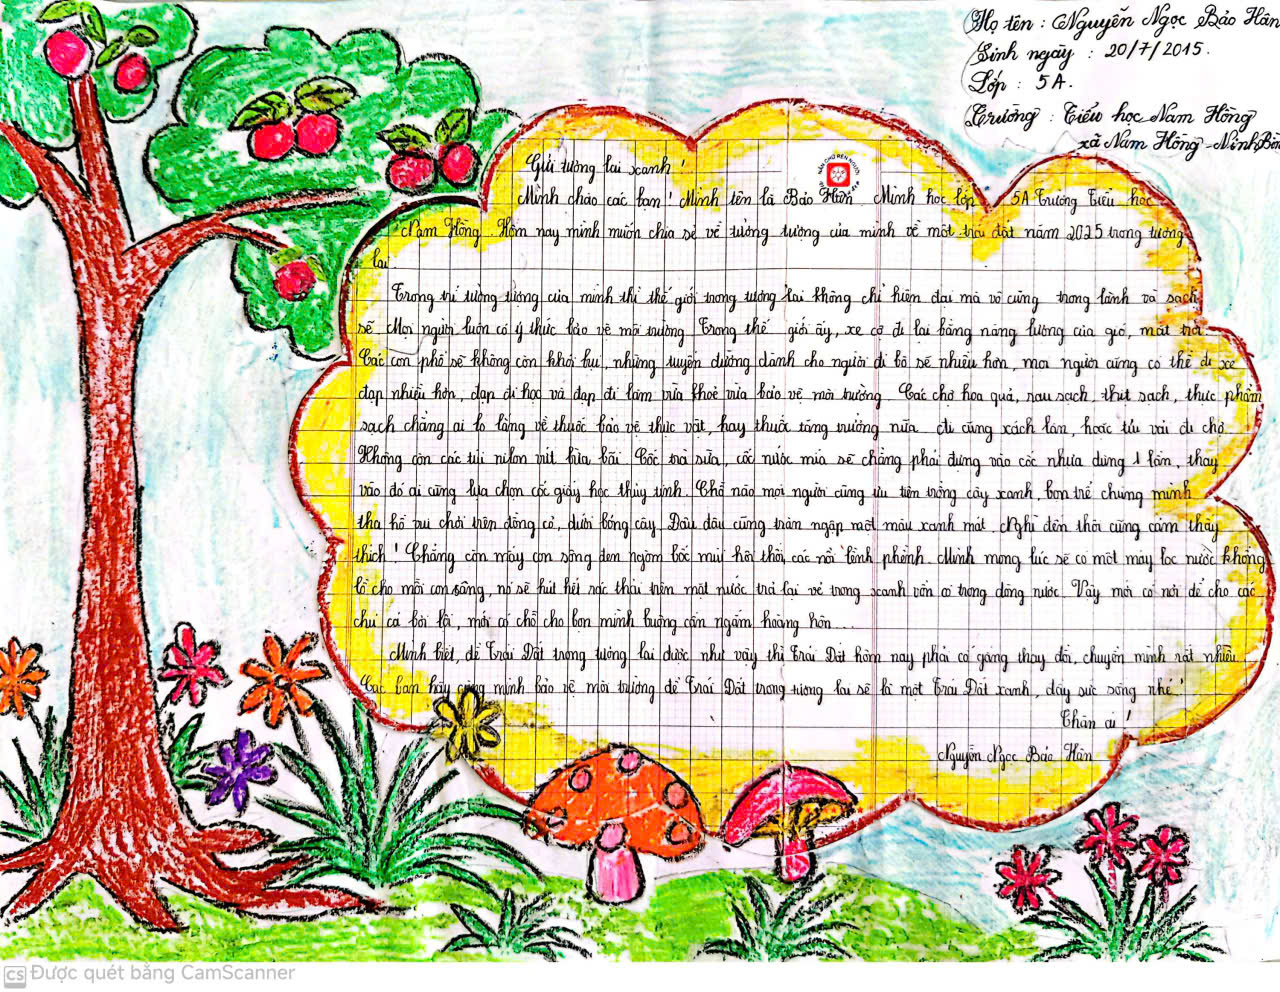 Họ tên : Nguyễn Ngọc Bảo Hân
Sinh ngày : 20/7/2015.
Lớp : 5A.
Trường : Tiểu học Nam Hồng
xã Nam Hồng - Ninh Bình
Gửi tương lai xanh !
Mình chào các bạn ! Mình tên là Bảo Hân Mình học lớp 5A Trường Tiểu học
Nam Hồng. Hôm nay mình muốn chia sẻ về tưởng tượng của mình về một trái đất năm 2025 trong tương
lai
Trong trí tưởng tượng của mình thì thế giới trong tương lai không chỉ hiện đại mà vô cùng trong lành và sạch
sẽ Mọi người luôn có ý thức bảo vệ môi trường Trong thế giới ấy, xe cộ đi lại bằng năng lượng của gió, mặt trời
Các con phố sẽ không còn khói bụi, những tuyến đường dành cho người đi bộ sẽ nhiều hơn, mọi người cũng có thể đi xe
đạp nhiều hơn, đạp đi học và đạp đi làm vừa khoẻ vừa bảo vệ môi trường Các chợ hoa quả, rau sạch, thịt sạch, thực phẩm
sạch chẳng ai lo lắng về thuốc bảo vệ thực vật, hay thuốc tăng trưởng nữa đi cũng xách làn, hoặc túi vải đi chợ.
Không còn các túi nilon vứt bừa bãi Cốc trà sữa, cốc nước mía sẽ chẳng phải đựng vào cốc nhựa dùng 1 lần, thay
vào đó ai cũng lựa chọn cốc giấy học thủy tinh. Chỗ nào mọi người cũng ưu tiên trồng cây xanh, bọn trẻ chúng mình
tha hồ vui chơi trên đồng cỏ, dưới bóng cây Đâu đâu cũng tràn ngập một màu xanh mát Nghĩ đến thôi cũng cảm thấy
thích ! Chẳng còn mấy con sông đen ngòm bốc mùi hôi thối, rác nổi lềnh phềnh Mình mong lúc sẽ có một máy lọc nước khổng
lồ cho mỗi con sông, nó sẽ hút hết rác thải trên mặt nước trả lại vẻ trong xanh vốn có trong dòng nước Vậy mới có nơi để cho các
chú cá bơi lội, mới có chỗ cho bọn mình buông cần ngắm hoàng hôn...
Mình biết, để Trái Đất trong tương lai được như vậy thì Trái Đất hôm nay phải cố gắng thay đổi, chuyển mình rất nhiều
Các bạn hãy cùng mình bảo vệ môi trường để Trái Đất trong tương lai sẽ là một Trái Đất xanh, đầy sức sống nhé !
Thân ái !
Nguyễn Ngọc Bảo Hân
CS Được quét bằng CamScanner